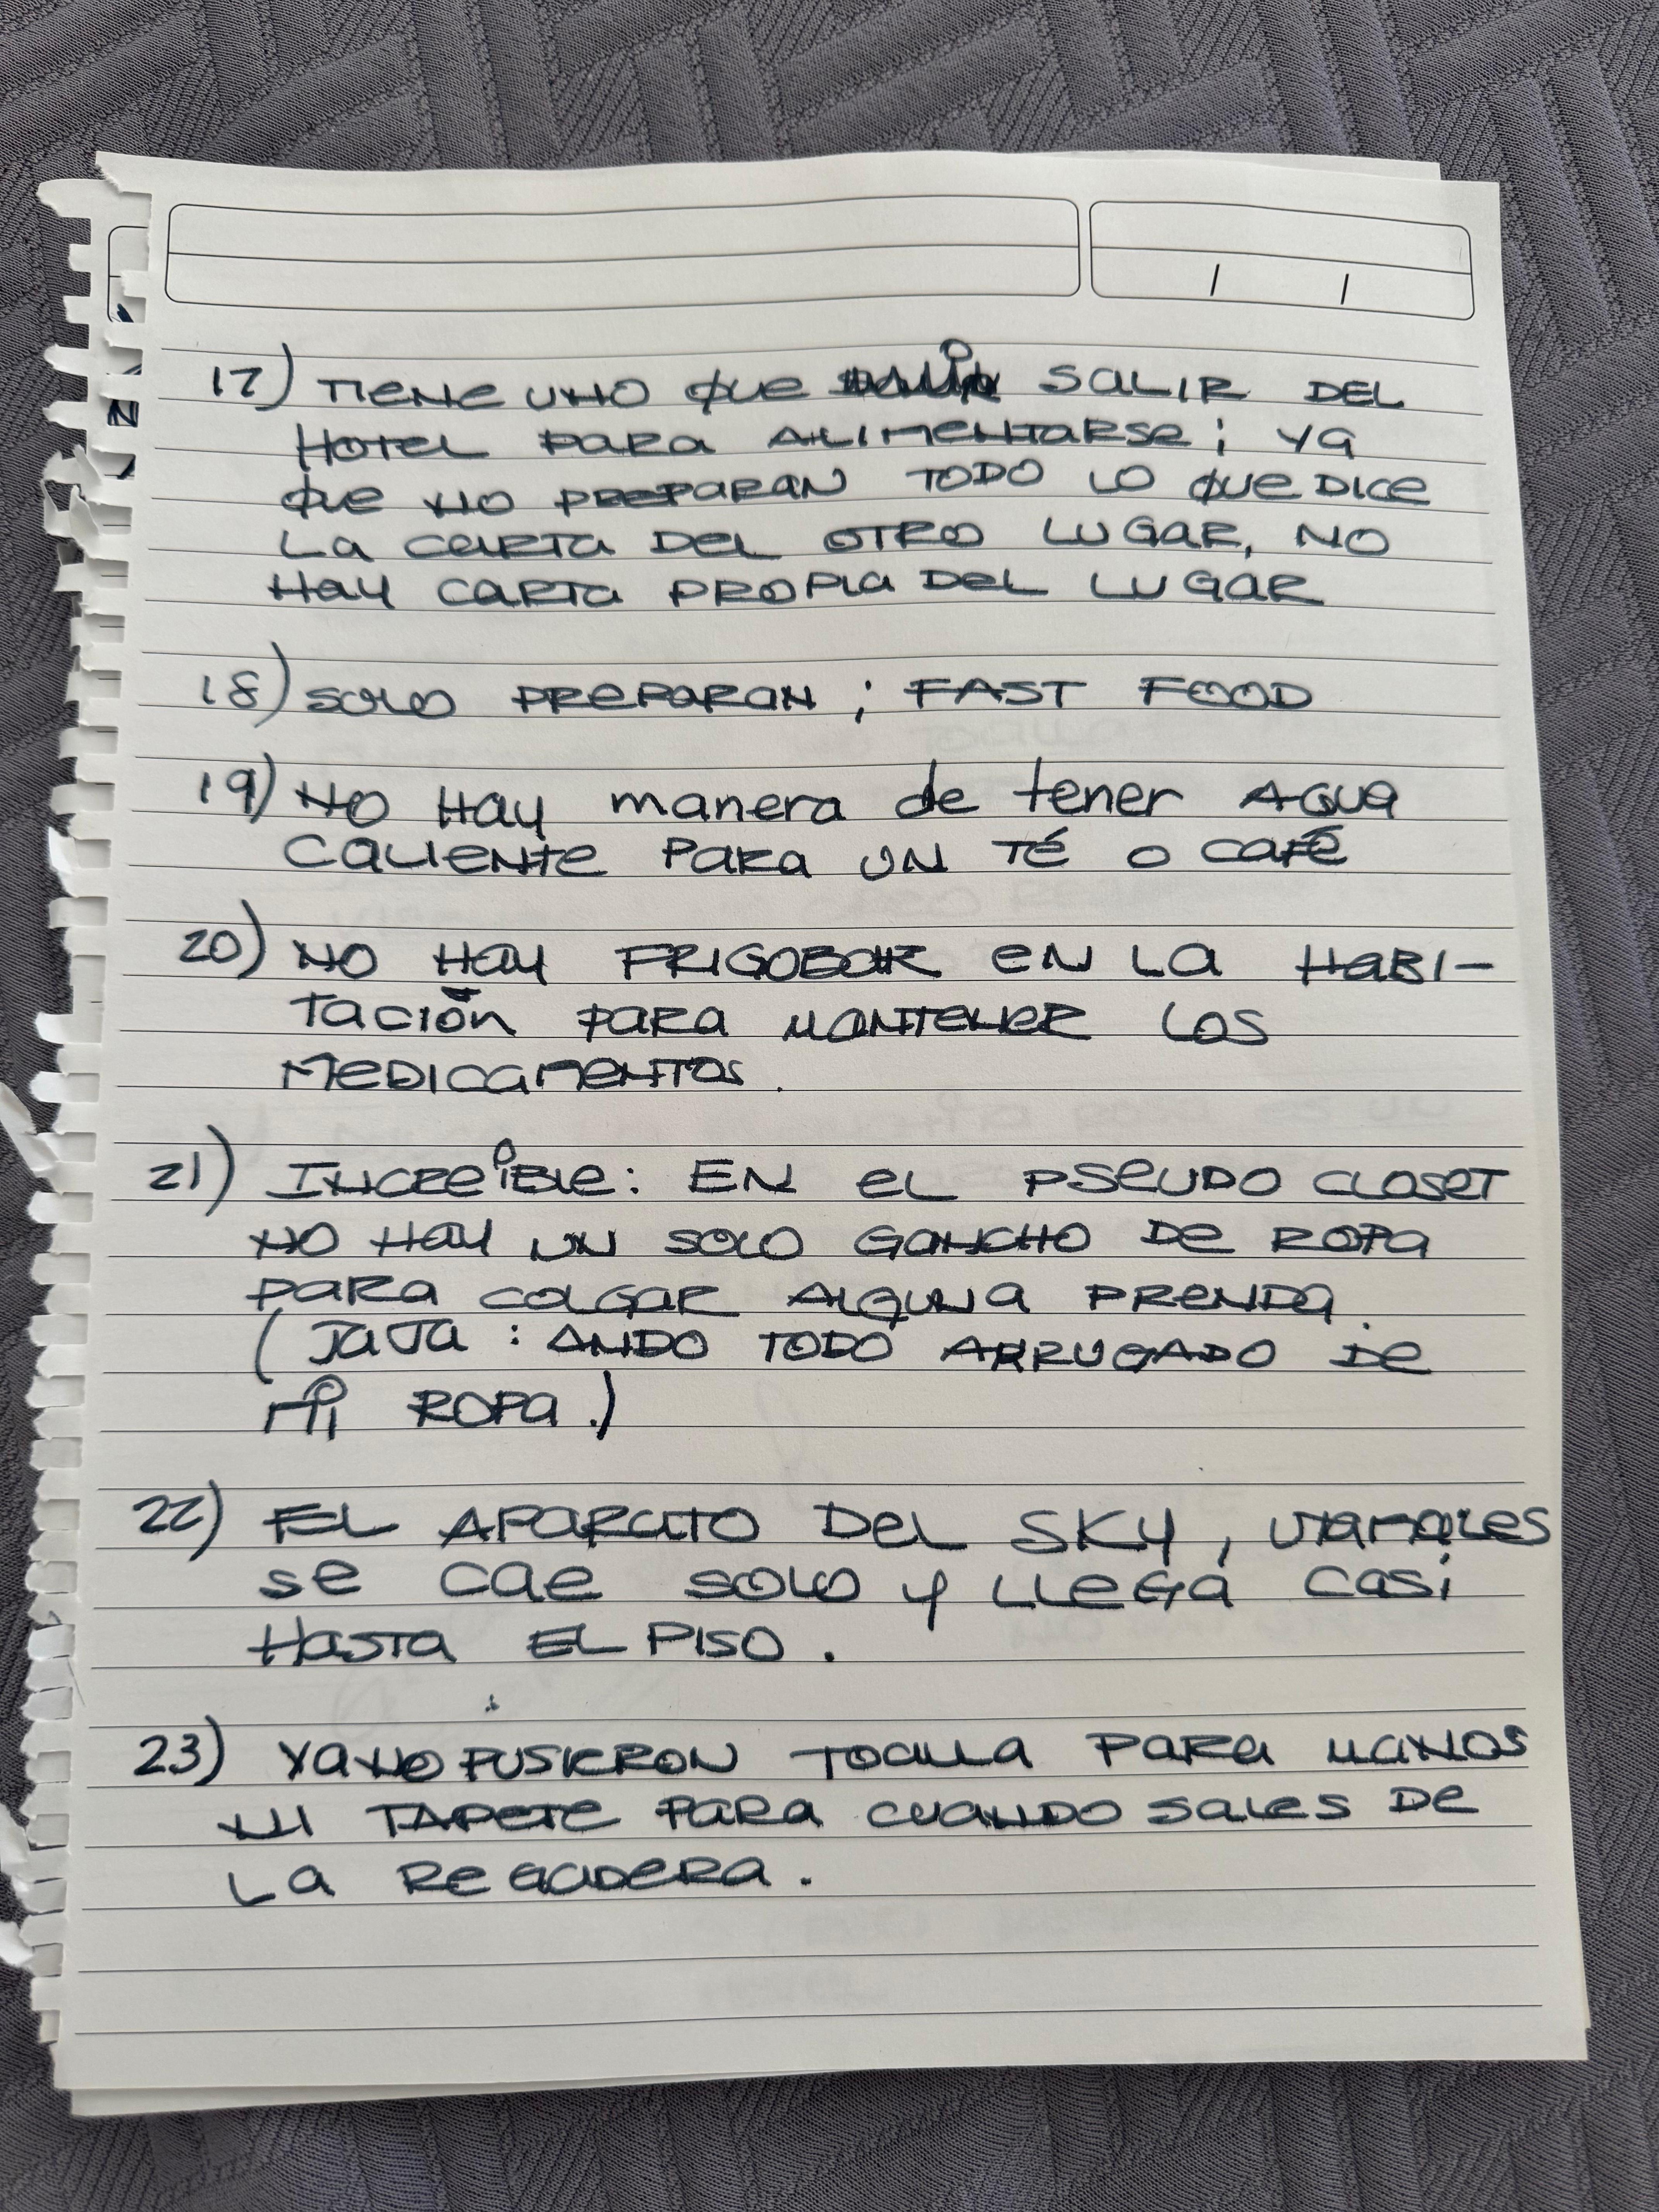 17) TIENE UNO QUE SALIR DEL
HOTEL PARA ALIMENTARSE; YA
QUE NO PREPARAN TODO LO QUE DICE
LA CARTA DEL OTRO LUGAR, NO
HAY CARTA PROPIA DEL LUGAR
18) SOLO PREPARAN; FAST FOOD
19) NO HAY manera de tener AGUA
CALIENTE PARA UN TÉ O CAFÉ
20) NO HAY FRIGOBAR EN LA HABI-
TACIÓN PARA MANTENER LOS
MEDICAMENTOS.
21) INCREÍBLE: EN EL PSEUDO CLOSET
NO HAY UN SOLO GANCHO DE ROPA
PARA COLGAR ALGUNA PRENDA.
(JAJA: ANDO TODO ARRUGADO DE
MI ROPA.)
22) EL APARATO DEL SKY,
SE CAE SOLO Y LLEGA CASI
HASTA EL PISO.
23) YA NO PUSIERON TOALLA PARA MANOS
NI TAPETE PARA CUANDO SALES DE
LA REGADERA.